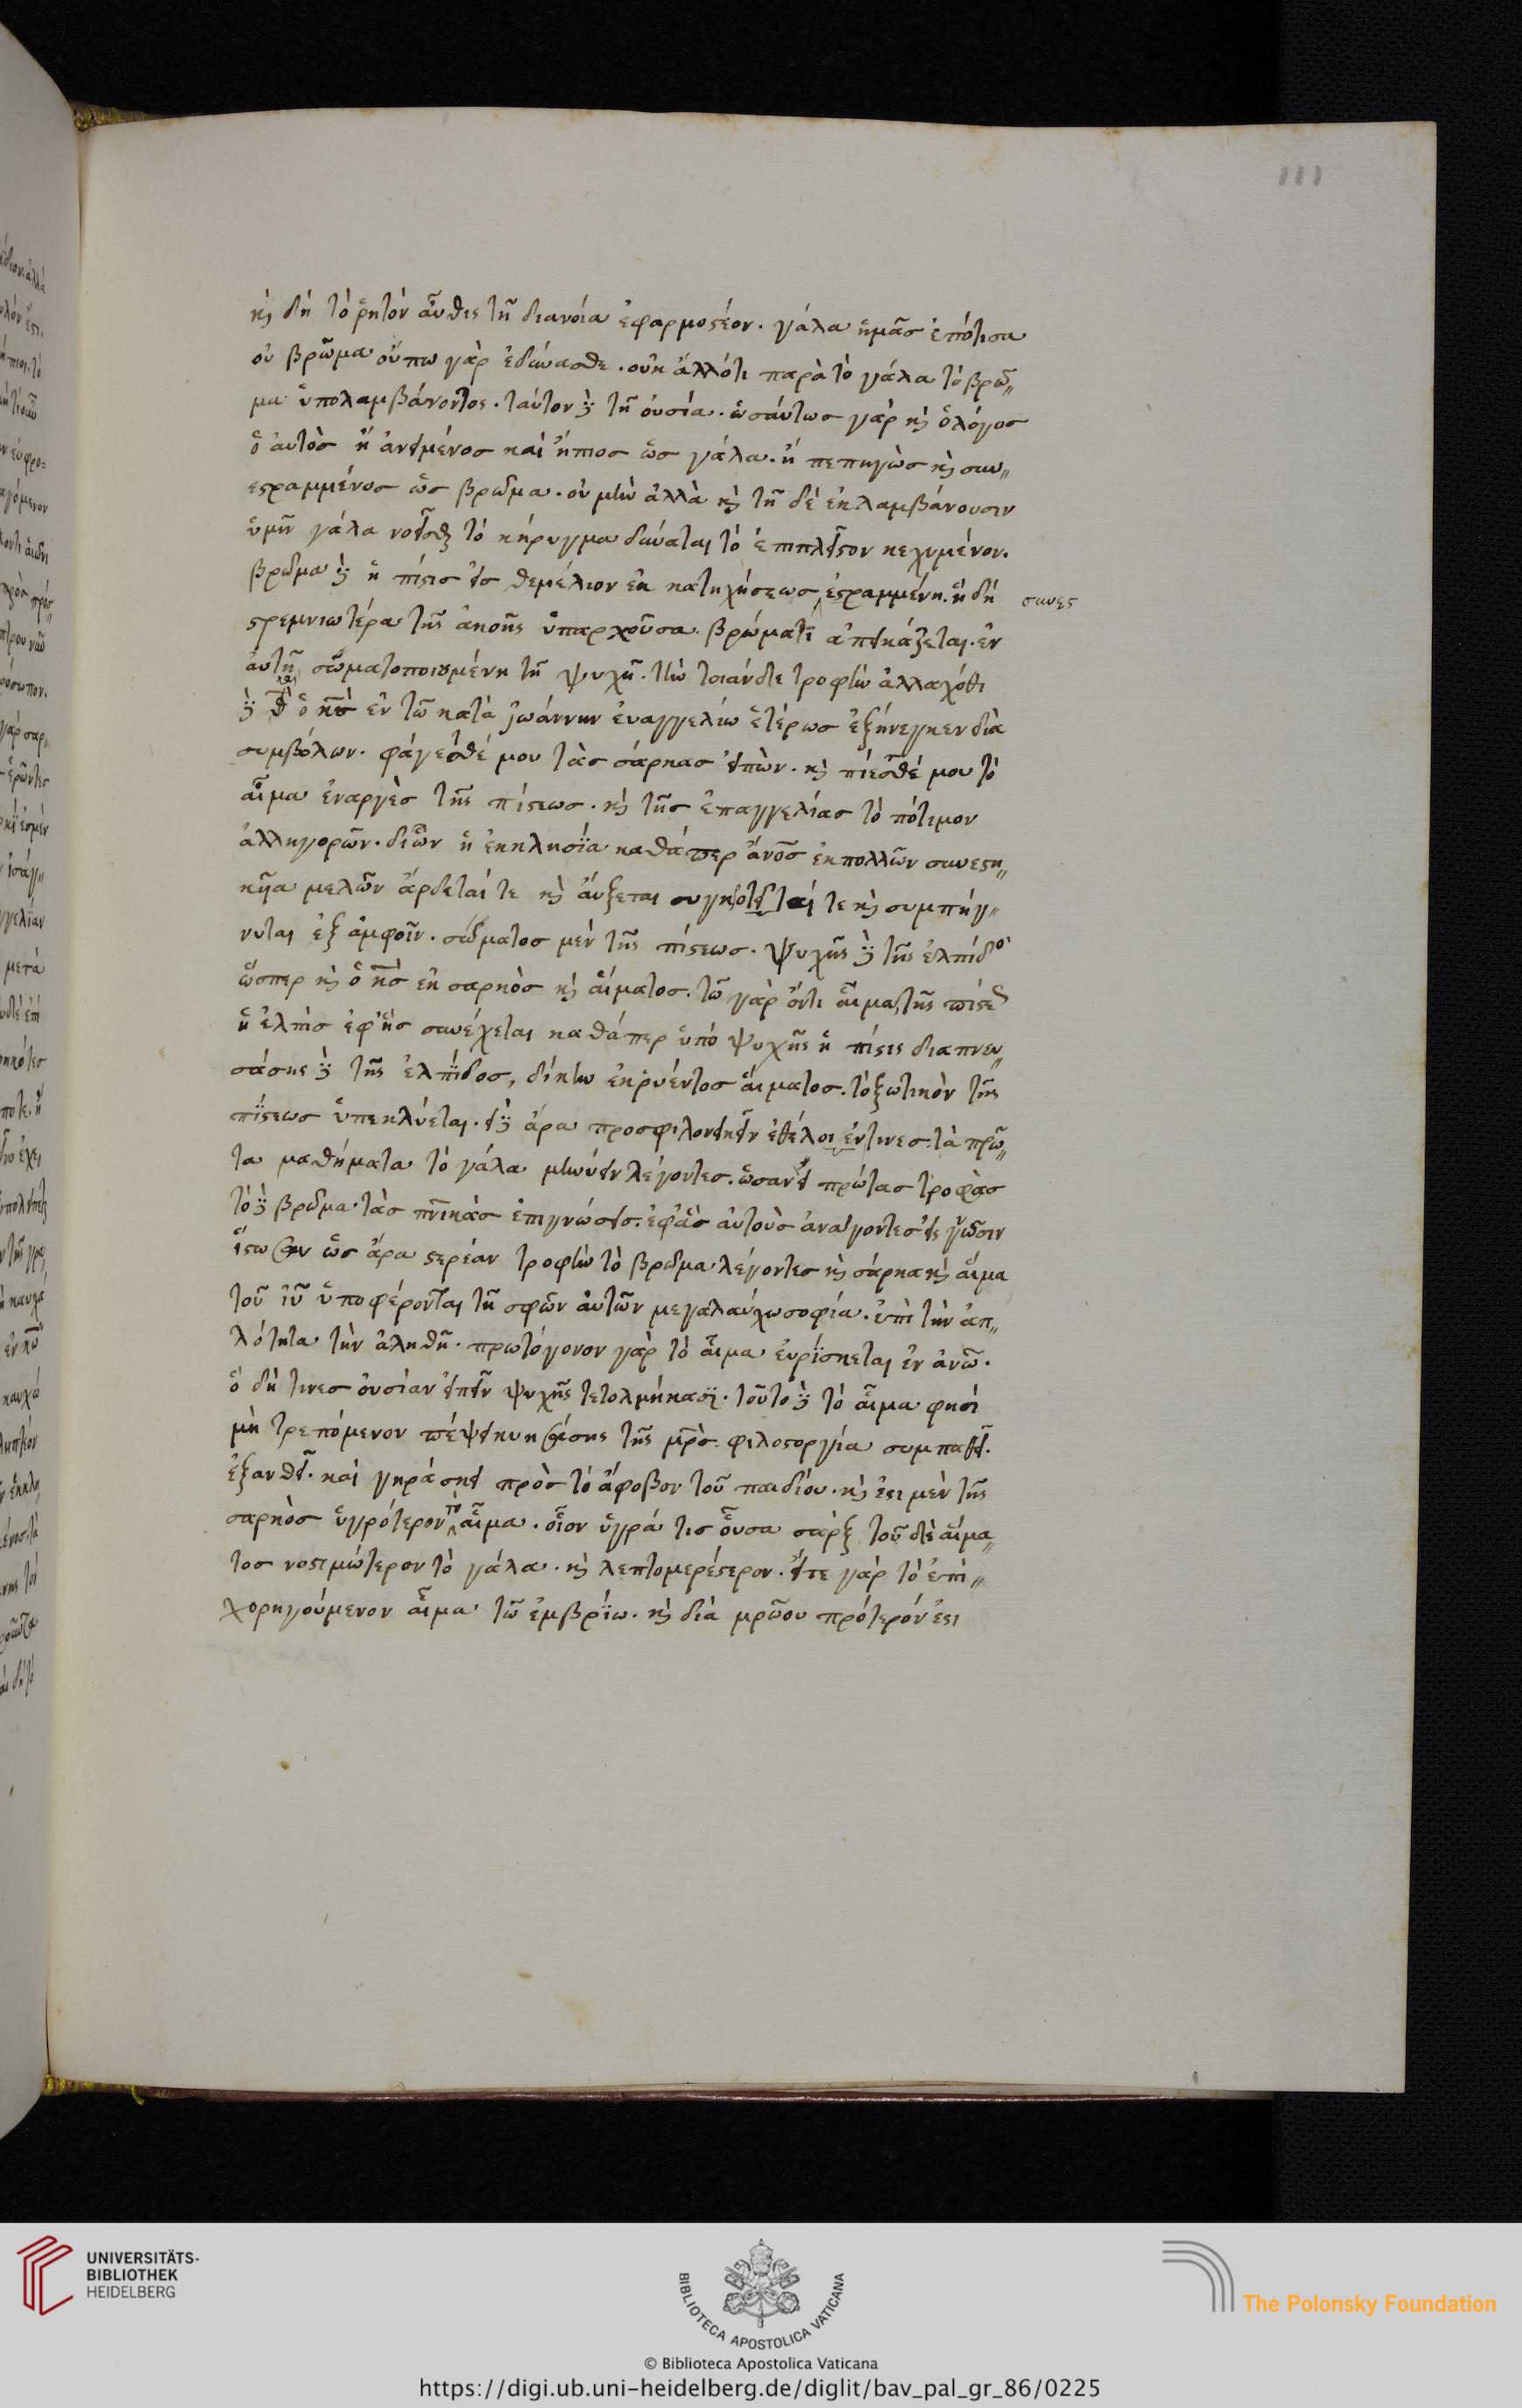 111
κ̀ δὴ τὸ ῥητὸν αὖθις τῆ διανοία ἐφαρμοστέον. γάλα ὑμᾶσ ἐπότισα
οὐ βρῶμα οὔπω γὰρ ἐδύνασθε. οὐκ ἀλλότι παρὰ τὸ γάλα τὸ βρῶ„
μα ὑπολαμβάνοντος. ταὐτὸν δὲ τῆ οὐσία. ὡσαύτωσ γὰρ κ̀ ὁ λόγοσ
ὁ αὐτὸσ ἢ ἀνειμένοσ καὶ ἤπιοσ ὡσ γάλα. ἢ πεπηγὼσ κ̀ συν„
εστραμμένοσ ὡσ βρῶμα. οὐ μὴν ἀλλὰ κ̀ τῆ δὲ ἐκλαμβάνουσιν
ὑμῖν γάλα νοεῖσθαι τὸ κήρυγμα δύναται τὸ ἐπιπλεῖστον κεχυμένον.
βρῶμα δὲ ἡ πίστισ εἰσ θεμέλιον ἐκ κατηχήσεωσ ἐστραμμένη. ἢ δὴ συνεσ
στρεμνιωτέρα τῆς ἀκοῆς ὑπαρχοῦσα. βρώματι ἀπεικάζεται. ἐν
αὐτῆ σωματοποιουμένη τῆ ψυχῆ. τὴν τοιάνδε τροφὴν ἀλλαχόθι
δὲ καὶ ὁ κ̅σ̅ ἐν τῶ κατὰ ἰωάννην εὐαγγελίω ἑτέρωσ ἐξήνεγκεν διὰ
συμβόλων. φάγεσθέ μου τὰσ σάρκασ εἰπὼν. κ̀ πίεσθέ μου τὸ
αἷμα ἐναργὲσ τῆς πίστεωσ. κ̀ τῆσ ἐπαγγελίασ τὸ πότιμον
ἀλληγορῶν. δι ὧν ἡ ἐκκλησία καθάπερ ἄν̅ο̅σ ἐκ πολλῶν συνεστη„
κῆα μελῶν ἄρδεταί τε κ̀ αὔξεται συγκροτεῖταί τε κ̀ συμπήγ„
νυται ἐξ ἀμφοῖν. σώματοσ μὲν τῆς πίστεωσ. ψυχῆς δὲ τῆς ἐλπίδο
ὥσπερ κ̀ ὁ κ̅σ̅ ἐκ σαρκὸσ κ̀ αἵματοσ. τῶ γὰρ ὄντι αἷμα τῆς πίστεως
ἡ ἐλπὶσ ἐφ᾽ ἧσ συνέχεται καθάπερ ὑπὸ ψυχῆς ἡ πίστις διαπνευ„
σάσης δὲ τῆς ἐλπίδοσ, δίκην ἐκρυέντοσ αἵματοσ. τὸ ζωτικὸν τῆς
πίστεωσ ὑπεκλύεται. εἰ δὲ ἄρα προσφιλονεικεῖν ἐθέλοιεν τινεσ τὰ πρῶ„
τα μαθήματα τὸ γάλα μηνύειν λέγοντεσ. ὡσανεὶ πρώτασ τροφὰσ
τὸ δὲ βρῶμα τὰσ πν̅ικὰσ ἐπιγνώσεισ. ἐφ᾽ ἃσ αὐτοὺσ ἀνάγοντεσ εἰς γνῶσιν
ἴστωσαν ὡσ ἄρα στερεὰν τροφὴν τὸ βρῶμα λέγοντεσ κ̀ σάρκα κ̀ αἷμα
τοῦ ἰ̅υ̅ ὑποφέρονται τῆ σφῶν αὐτῶν μεγαλαύχω σοφία. ἐπὶ τὴν ἁπ„
λότητα τὴν ἀληθῆ. πρωτόγονον γὰρ τὸ αἷμα εὑρίσκεται ἐν ἀν̅ω̅.
ὃ δή τινεσ οὐσίαν εἰπεῖν ψυχῆς τετολμήκασι. τοῦτο δὲ τὸ αἷμα φησὶ
μὴ τρεπόμενον πέψει κυησάσης τῆς μρ̅ὸσ. φιλοστοργία συμπαθεῖ.
ἐξανθεῖ. καὶ γηράσκει πρὸσ τὸ ἄφοβον τοῦ παιδίου. κ̀ ἔστι μὲν τῆς
σαρκὸσ ὑγρότερον τὸ αἷμα. οἷον ὑγρά τισ οὖσα σὰρξ τοῦ δὲ αἵμα„
τοσ νοστιμώτερον τὸ γάλα. κ̀ λεπτομερέστερον. εἴτε γὰρ τὸ ἐπι„
χορηγούμενον αἷμα τῶ ἐμβρύω. κ̀ διὰ μρώου πρότερόν ἐστι
UNIVERSITÄTS-
BIBLIOTHEK
HEIDELBERG
BIBLIOTECA APOSTOLICA VATICANA
The Polonsky Foundation
© Biblioteca Apostolica Vaticana
https://digi.ub.uni-heidelberg.de/diglit/bav_pal_gr_86/0225